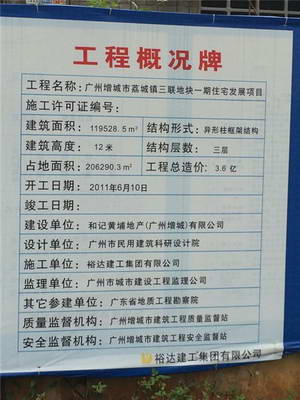 工程概况牌
工程名称：广州增城市荔城镇三联地块一期住宅发展项目
施工许可证编号：
建筑面积： 119528.5m² 结构形式： 异形柱框架结构
建筑高度： 12米 结构层数： 三层
占地面积： 206290.3m² 工程总造价： 3.6亿
开工日期： 2011年6月10日
竣工日期：
建设单位： 和记黄埔地产(广州增城)有限公司
设计单位： 广州市民用建筑科研设计院
施工单位： 裕达建工集团有限公司
监理单位： 广州市城市建设工程监理公司
其它参建单位： 广东省地质工程勘察院
质量监督机构： 广州增城市建筑工程质量监督站
安全监督机构： 广州增城市建筑工程安全监督站
裕达建工集团有限公司